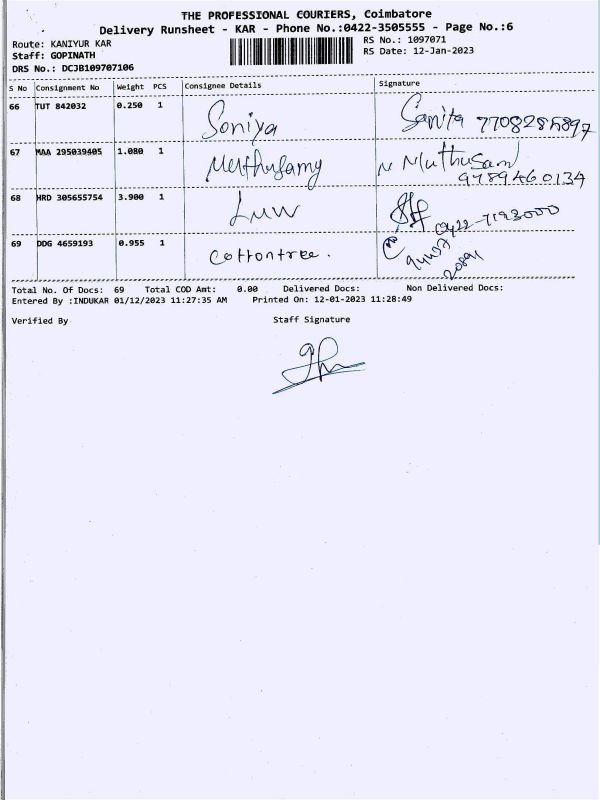 THE PROFESSIONAL COURIERS, Coimbatore
Delivery Runsheet - KAR - Phone No.:0422-3505555 - Page No.:6
Route: KANIYUR KAR
RS No.: 1097071
Staff: GOPINATH
RS Date: 12-Jan-2023
DRS No.: DCJB109707106
S No Consignment No Weight PCS Consignee Details Signature
66 TUT 842032 0.250 1 Soniya
67 MAA 295039405 1.080 1 9789460134
68 HRD 305655754 3.900 1 0422-7193000
69 DDG 4659193 0.955 1 Cottontree.
Total No. Of Docs: 69 Total COD Amt: 0.00 Delivered Docs: Non Delivered Docs:
Entered By :INDUKAR 01/12/2023 11:27:35 AM Printed On: 12-01-2023 11:28:49
Verified By Staff Signature